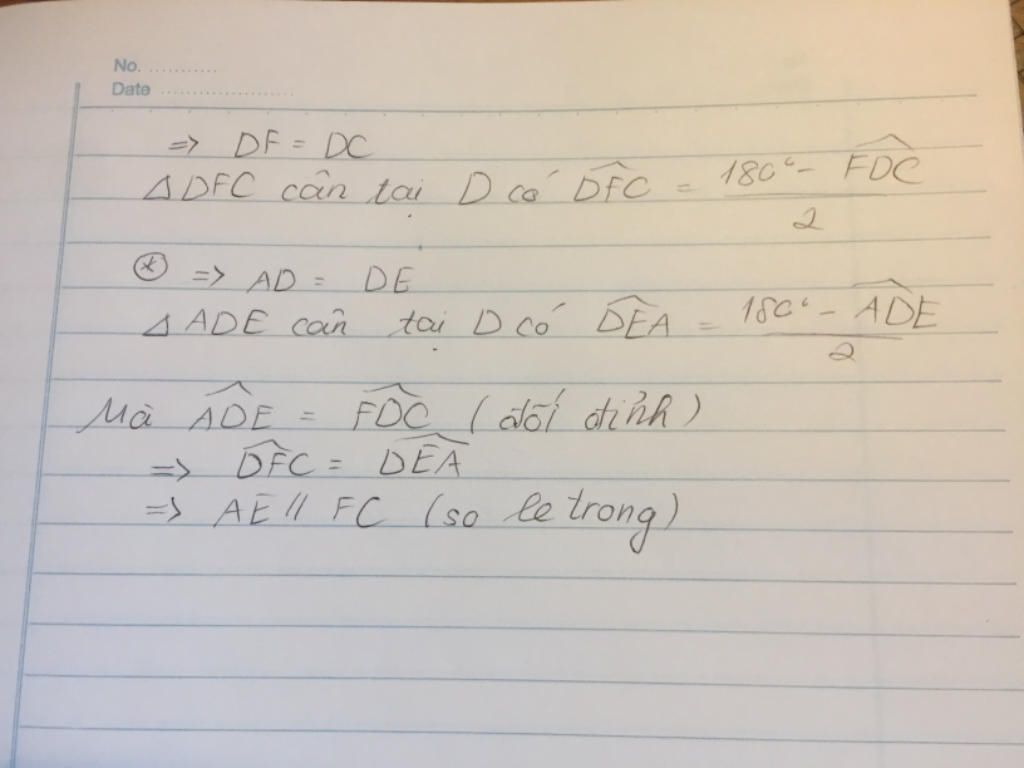 No. ............
Date ......................
=> DF = DC
Δ DFC cân tại D có $\widehat{DFC}$ = $\frac{180° - \widehat{FDC}}{2}$
(*) => AD = DE
Δ ADE cân tại D có $\widehat{DEA}$ = $\frac{180° - \widehat{ADE}}{2}$
Mà $\widehat{ADE}$ = $\widehat{FDC}$ (đối đỉnh)
=> $\widehat{DFC}$ = $\widehat{DEA}$
=> AE // FC (so le trong)